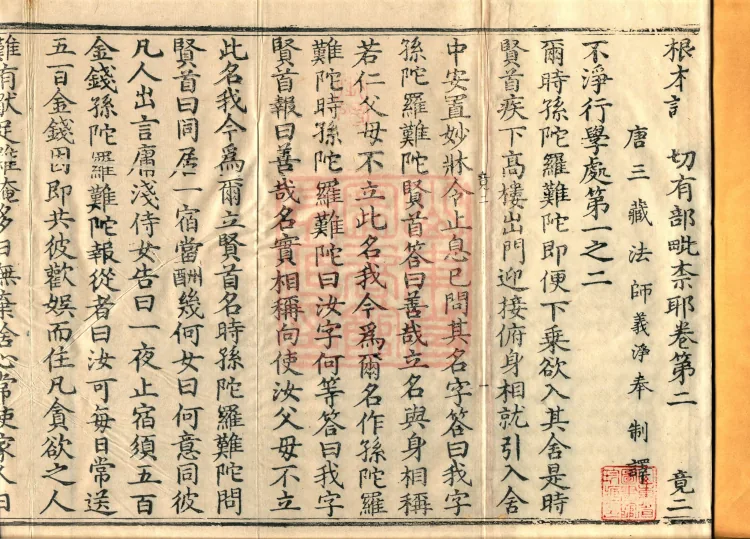 根本訁 切有部毗柰耶卷第二 竟二
唐三藏法師義淨奉制譯
不淨行學處第一之二
爾時孫陀羅難陀即便下乘欲入其舍是時
賢首疾下高樓出門迎接俯身相就引入舍
中安置妙牀令止息已問其名字答曰我字
孫陀羅難陀賢首答曰善哉立名與身相稱
若仁父母不立此名我今爲爾名作孫陀羅
難陀時孫陀羅難陀曰汝字何等答曰我字
賢首報曰善哉名實相稱向使汝父母不立
此名我今爲爾立賢首名時孫陀羅難陀問
賢首曰同居一宿當酬幾何女曰何意同彼
凡人出言庸淺侍女告曰一夜止宿須五百
金錢孫陀羅難陀報從者曰汝可每日常送
五百金錢因即共彼歡娛而住凡貪欲之人
難有猒足經淹多日無棄捨心常使家人日